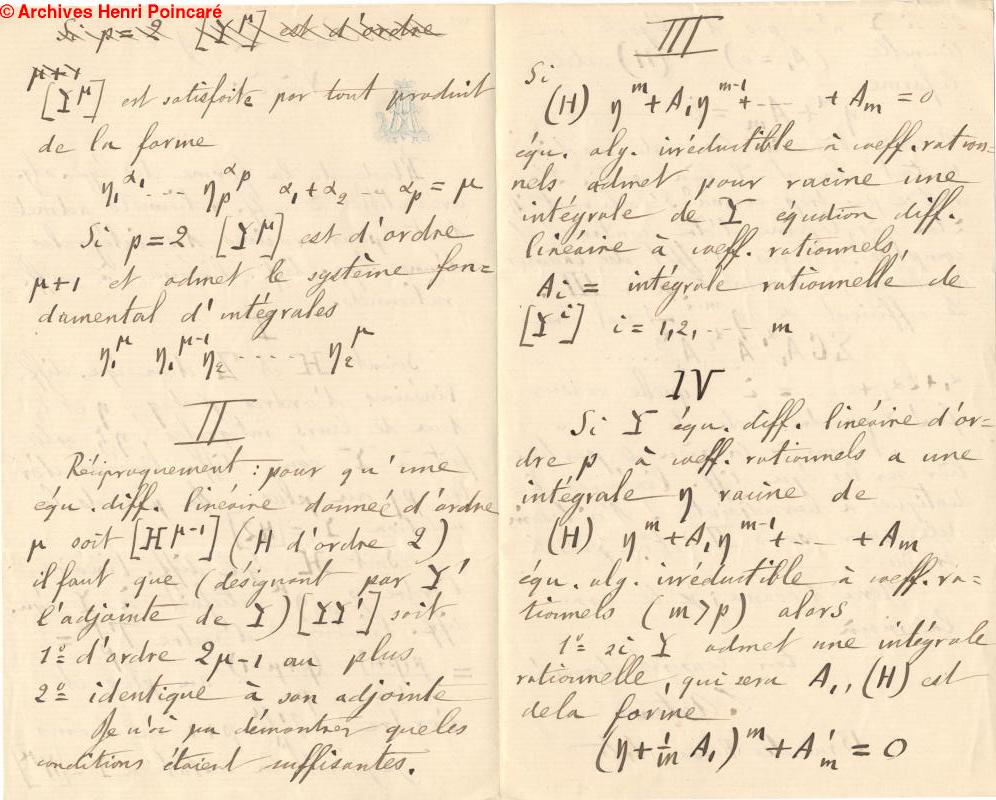 © Archives Henri Poincaré
Si p = 2 [Y^μ] est d'ordre
μ+1
[Y^μ] est satisfaite par tout produit
de la forme
η₁^α₁ ... η_p^α_p α₁ + α₂ ... α_p = μ
Si p = 2 [Y^μ] est d'ordre
μ+1 et admet le système fon=
damental d'intégrales
η₁^μ η₁^μ-1 η₂ ..... η₂^μ
II
Réciproquement : pour qu'une
équ. diff. linéaire donnée d'ordre
μ soit [H^μ-1] (H d'ordre 2)
il faut que (désignant par Y'
l'adjointe de Y) [YY'] soit
1º d'ordre 2μ-1 au plus
2º identique à son adjointe
Je n'ai pu démontrer que les
conditions étaient suffisantes.
III
Si
(H) η^m + A₁η^m-1 + --- + A_m = 0
équ. alg. irréductible à coeff. ration=
nels admet pour racine une
intégrale de Y équation diff.
linéaire à coeff. rationnels,
A_i = intégrale rationnelle de
[Y^i] i = 1, 2, ---- m
IV
Si Y équ. diff. linéaire d'or=
dre p à coeff. rationnels a une
intégrale η racine de
(H) η^m + A₁η^m-1 + --- + A_m
équ. alg. irréductible à coeff. ra=
tionnels (m > p) alors
1º si Y admet une intégrale
rationnelle, qui sera A₁, (H) est
de la forme
(η + 1/m A₁)^m + A'_m = 0